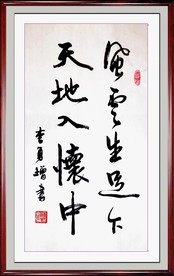 風雲生足下
天地入懷中
李勇增書